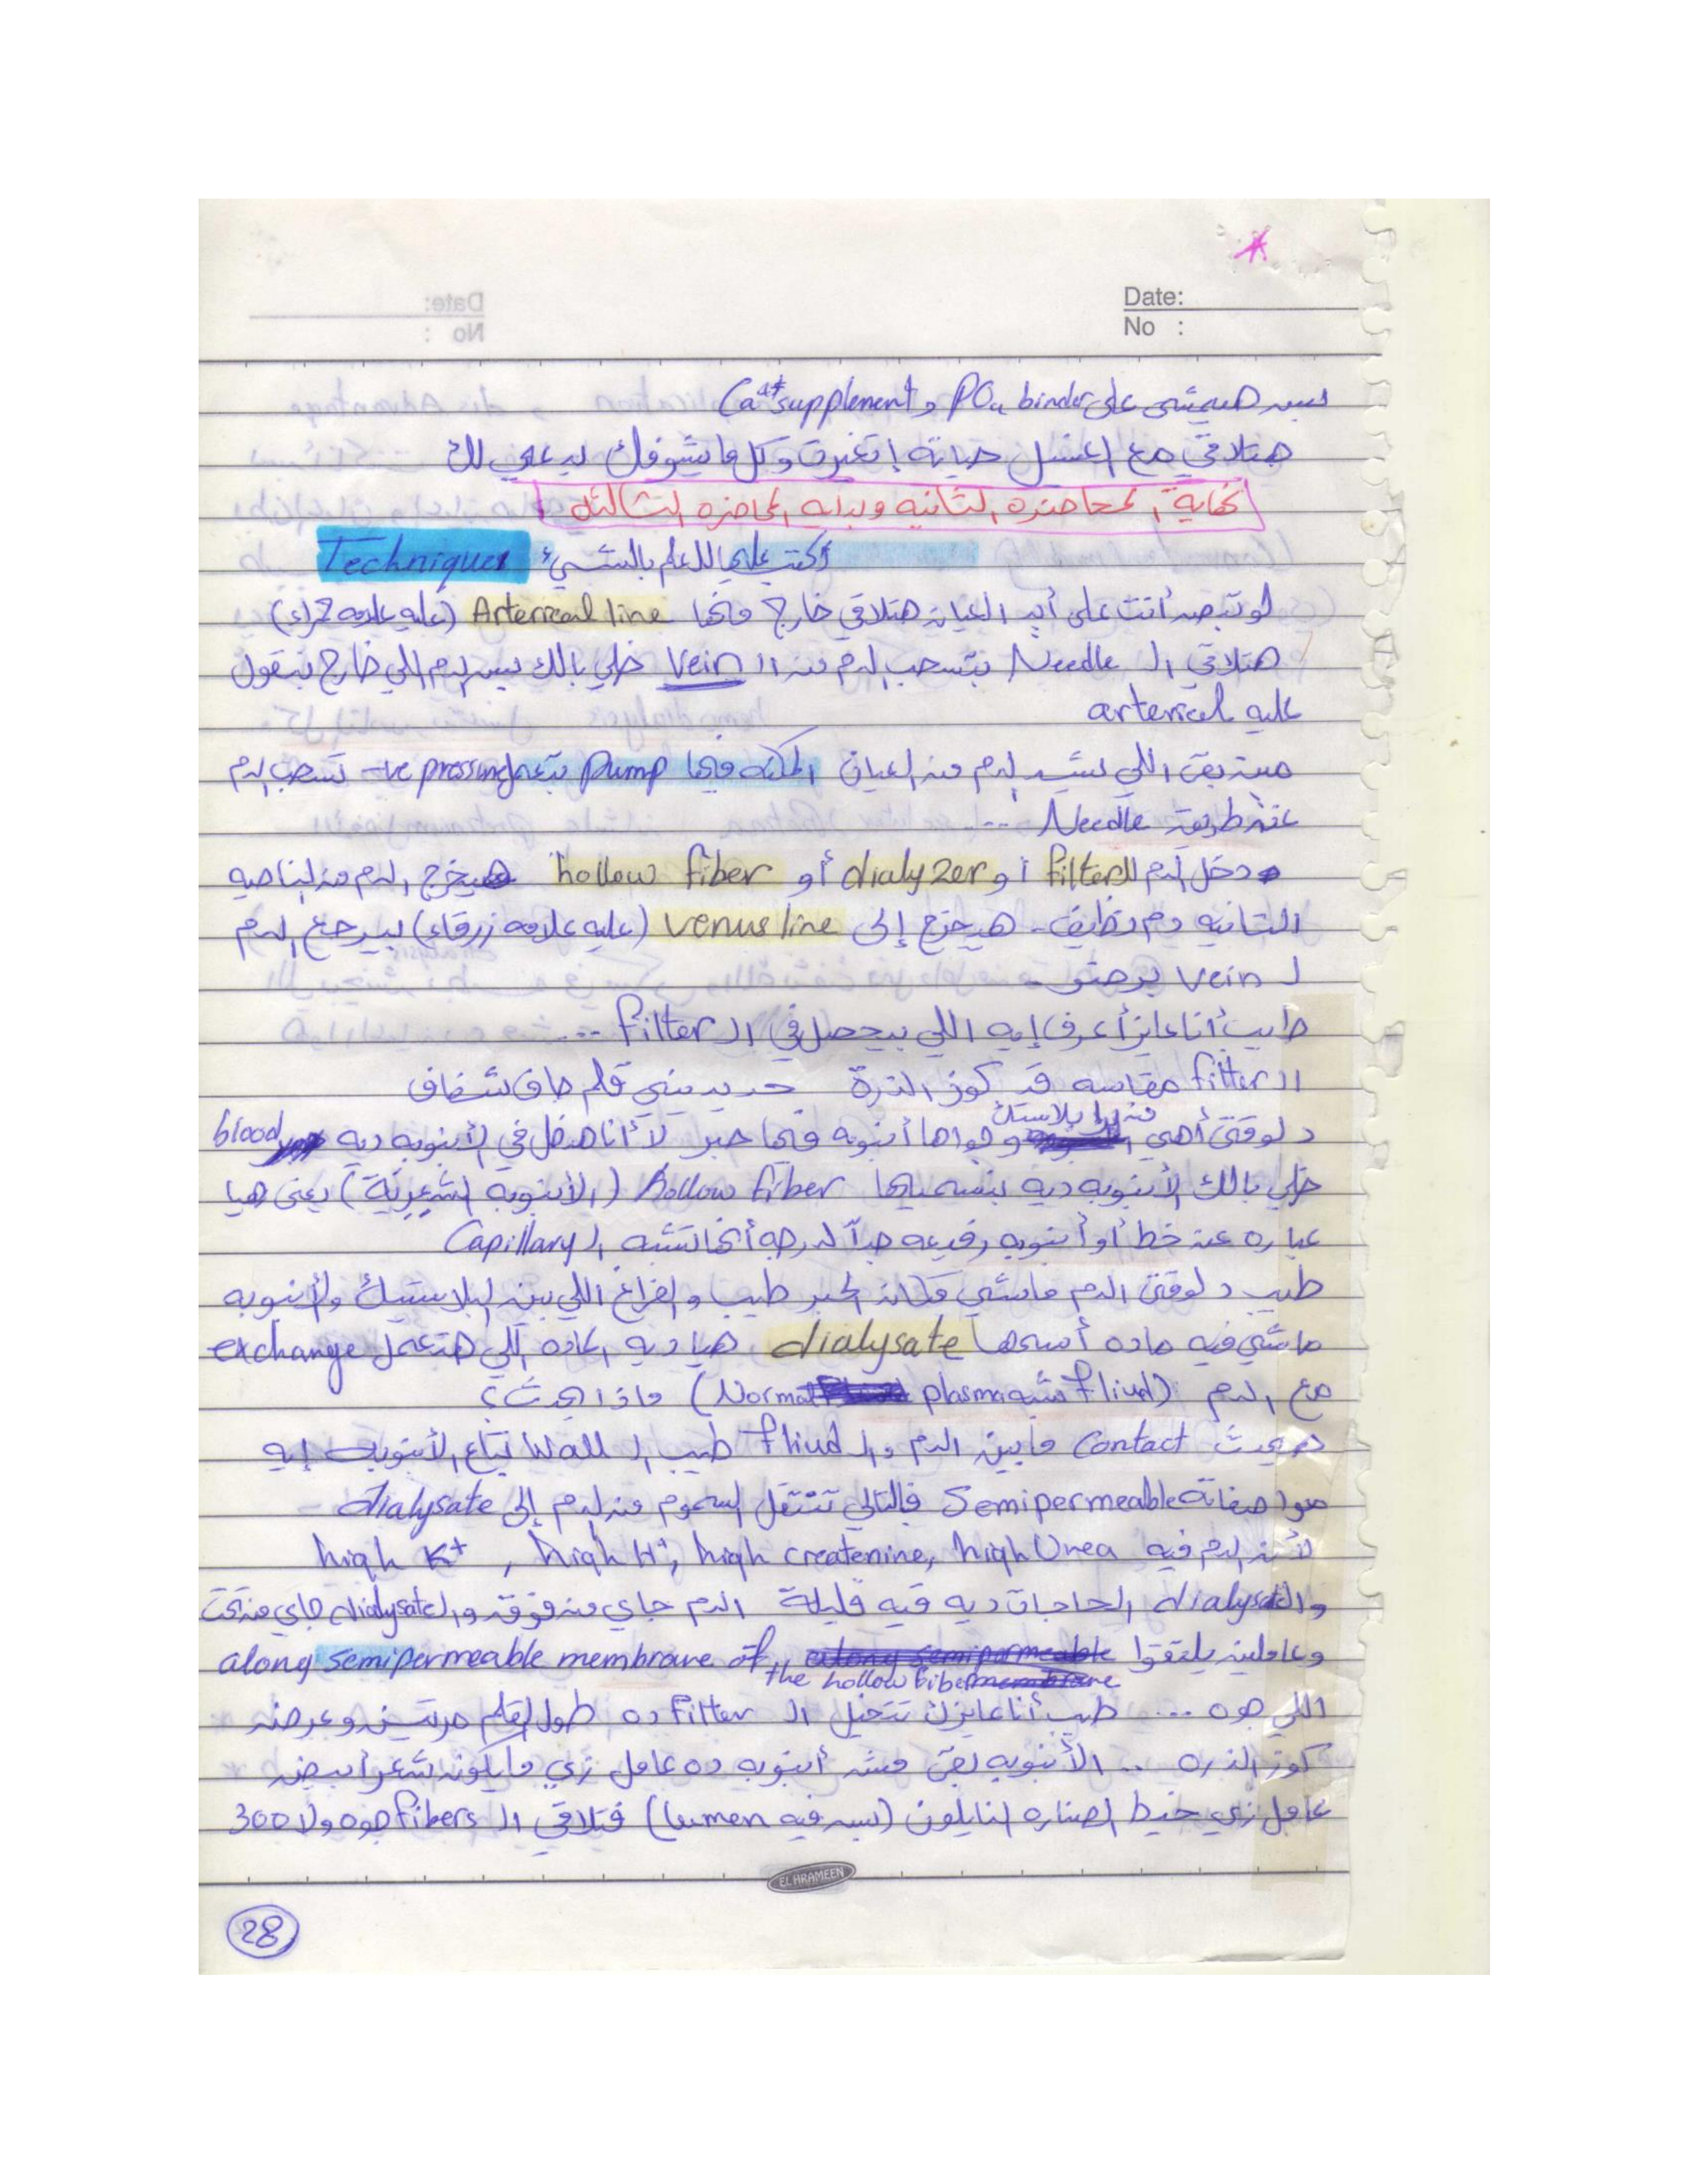 Date:
No :
بس هيمشي على PO4 binder و Ca++ supplement
هتلاقي مع الغسل حياته إتغيرت وكل ما يشوفك يدعي لك
نهاية المحاضره الثانيه وبدايه المحاضره الثالثه
Techniques أكتب عليها للعلم بالشيء
لو تبص أنت على أيد العيان هتلاقي خارج منها Arterieal line (عليه علامه حمراء)
هتلاقي الـ Needle بتسحب الدم من الـ Vein خلي بالك بس الدم اللي خارج بنقول
عليه arterieal
مين بقى اللي بيشد الدم من العيان المكنه فيها pump بتعمل -ve pressing تسحب الدم
عن طريق Needle ...
دخل الدم الـ filter أو dialyzer أو hollow fiber هيخرج الدم من الناحيه
التانيه دم نظيف . هيخرج إلى venus line (عليه علامه زرقاء) بيرجع الدم
لـ vein برضو .
طيب أنا عايز أعرف إيه اللي بيحصل في الـ filter ...
الـ filter مقاسه قد كوز الذرة حد يديني قلم جاف شفاف
دلوقتى أهي من برا بلاستك وجواها أنبوبه فيها حبر لأ أنا هدخل في الأنبوبه ديه blood
خلي بالك الأنبوبه ديه بنسميها hollow fiber (الأنبوبه الشعرية) يعنى هيا
عباره عن خط أو أنبوبه رفيعه جداً لدرجه أنها تشبه الـ Capillary
طيب دلوقتى الدم ماشي مكان الحبر طيب والفراغ اللي بين البلاستيك والأنبوبه
ماشي فيه ماده أسمها dialysate هيا ديه الماده اللي هتعمل exchange
مع الدم (fliud شبه Normal plasma) ماذا يحدث؟
هيحدث Contact مابين الدم والـ fliud طيب الـ Wall بتاع الأنبوبه إيه
مواصفاتة Semipermeable فبالتالي تنتقل السموم من الدم إلى dialysate
لأن الدم فيه high K+ , high H+, high createnine, high Urea
والـ dialysate الحاجات ديه فيه قليلة الدم جاي من فوق والـ dialysate جاي من تحت
وعاملين يلتقوا along semipermeable membrane of the hollow fiber
اللي جوه ... طيب أنا عايزك تتخيل الـ filter ده طول القلم مرتين وعرضه
كوز الذره .. الأنبوبه بقى مش أنبوبه ده عامل زي ما يكون شعر أبيض
عامل زي خيط الصناره النايلون (بس فيه lumen) فتلاقي الـ fibers جوه ولا 300
EL HRAMEEN
28